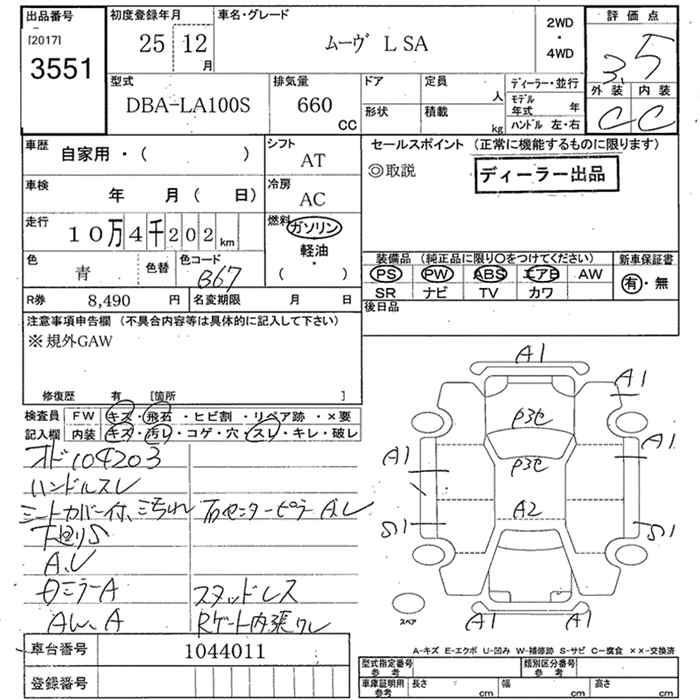 出品番号
[2017]
3551
初度登録年月
25 12 月
車名・グレード
ムーヴ L SA
2WD
・
4WD
評価点
3.5
外装 内装
C C
型式
DBA-LA100S
排気量
660
CC
ドア
定員
人
形状
積載
kg
ディーラー・並行
モデル年式 年
ハンドル 左・右
車歴
自家用・( )
シフト
AT
車検
年 月( 日)
冷房
AC
走行
10万4千202km
燃料
ガソリン
軽油
( )
色
青
色替
色コード
B67
R券 8,490 円
名変期限 月 日
セールスポイント (正常に機能するものに限ります)
◎取説
ディーラー出品
装備品 (純正品に限り○をつけてください)
PS PW ABS エアB AW
SR ナビ TV カワ
新車保証書
有・無
後日品
注意事項申告欄 (不具合内容等は具体的に記入して下さい)
※規外GAW
修復歴 有 [箇所 ]
検査員記入欄
FW キズ・飛石・ヒビ割・リペア跡・×要
内装 キズ・汚レ・コゲ・穴・スレ・キレ・破レ
オド104203
ハンドルスレ
シートカバー付、ミラ汚れ
右センターピラーA、レ
下廻りS
A、U
ミラーA
スタッドレス
AW、A
Rゲート内張ワレ
A1
A1
P3セ
P3セ
A1
A1
A2
S1
S1
A1
A1
スペア
A-キズ E-エクボ U-凹み W-補修跡 S-サビ C-腐食 ××-交換済
車台番号
1044011
登録番号
型式指定番号 参考
類別区分番号 参考
車庫証明用 参考
長さ cm
幅 cm
高さ cm